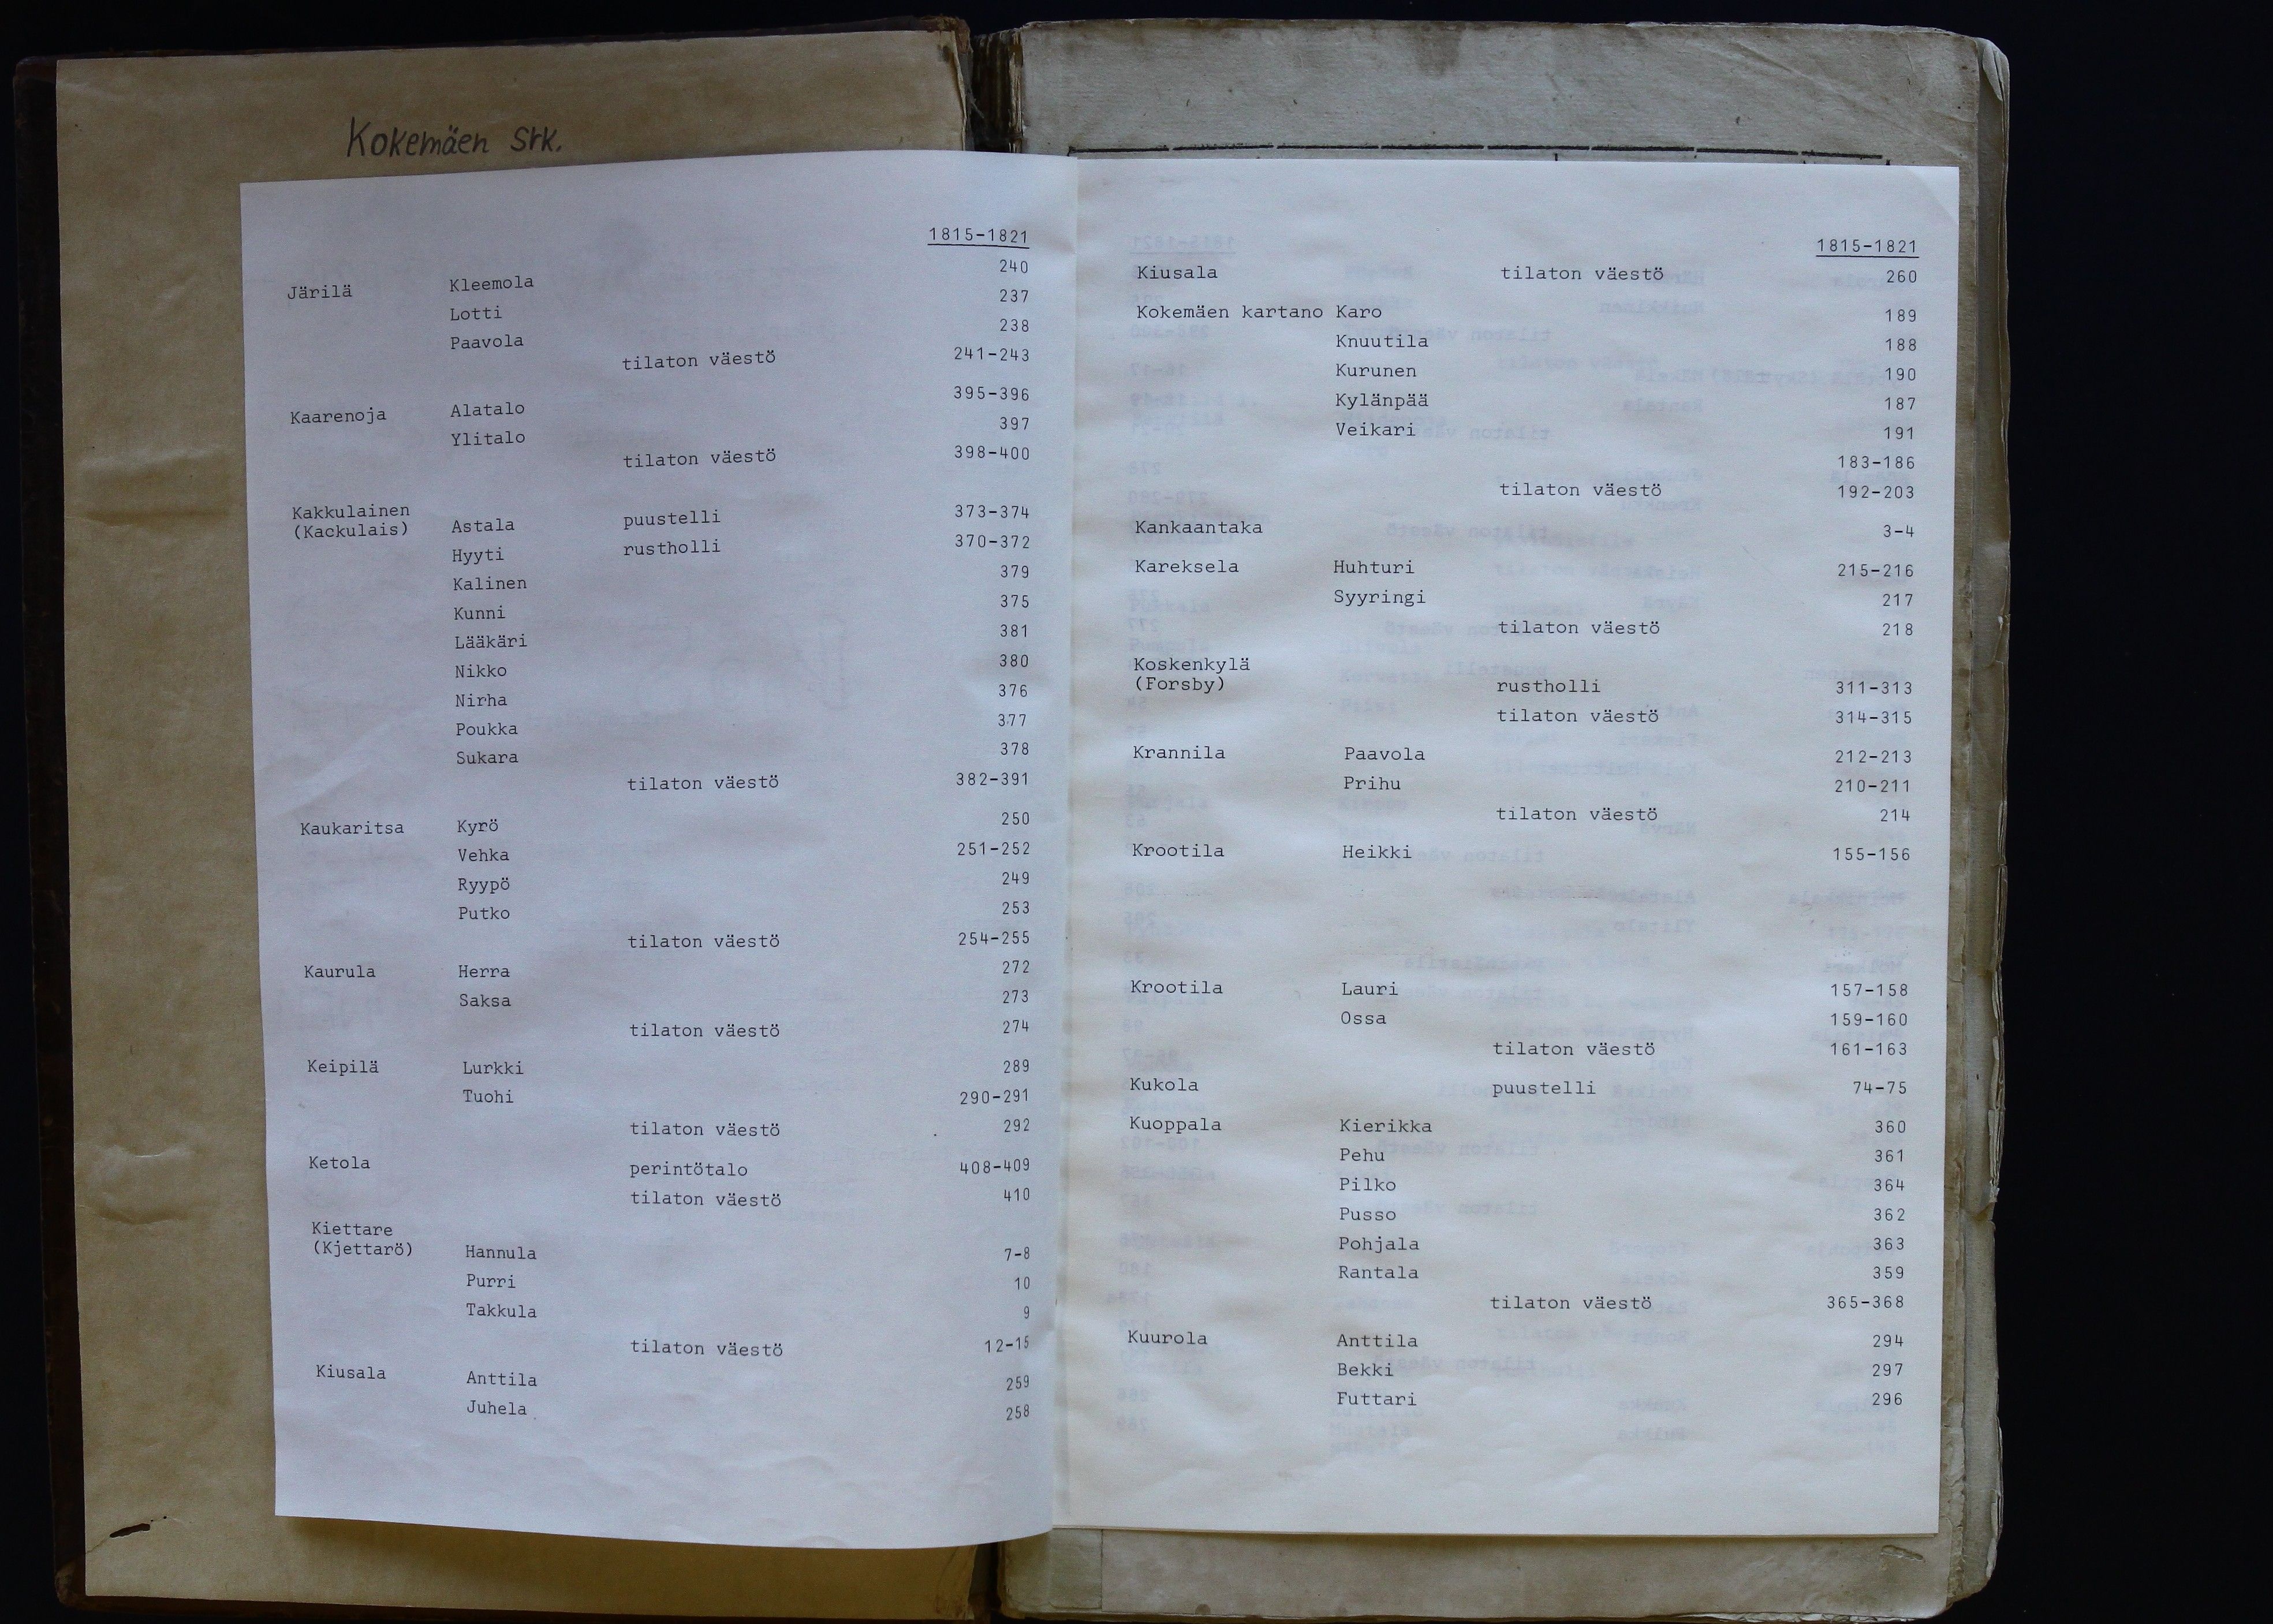 Kokemäen srk.
1815-1821
Järilä Kleemola 240
Lotti 237
Paavola 238
tilaton väestö 241-243
Kaarenoja Alatalo 395-396
Ylitalo 397
tilaton väestö 398-400
Kakkulainen
(Kackulais) Astala puustelli 373-374
Hyyti rustholli 370-372
Kalinen 379
Kunni 375
Lääkäri 381
Nikko 380
Nirha 376
Poukka 377
Sukara 378
tilaton väestö 382-391
Kaukaritsa Kyrö 250
Vehka 251-252
Ryypö 249
Putko 253
tilaton väestö 254-255
Kaurula Herra 272
Saksa 273
tilaton väestö 274
Keipilä Lurkki 289
Tuohi 290-291
tilaton väestö 292
Ketola perintötalo 408-409
tilaton väestö 410
Kiettare
(Kjettarö) Hannula 7-8
Purri 10
Takkula 9
tilaton väestö 12-15
Kiusala Anttila 259
Juhela 258
1815-1821
Kiusala tilaton väestö 260
Kokemäen kartano Karo 189
Knuutila 188
Kurunen 190
Kylänpää 187
Veikari 191
183-186
tilaton väestö 192-203
Kankaantaka 3-4
Kareksela Huhturi 215-216
Syyringi 217
tilaton väestö 218
Koskenkylä
(Forsby) rustholli 311-313
tilaton väestö 314-315
Krannila Paavola 212-213
Prihu 210-211
tilaton väestö 214
Krootila Heikki 155-156
Krootila Lauri 157-158
Ossa 159-160
tilaton väestö 161-163
Kukola puustelli 74-75
Kuoppala Kierikka 360
Pehu 361
Pilko 364
Pusso 362
Pohjala 363
Rantala 359
tilaton väestö 365-368
Kuurola Anttila 294
Bekki 297
Futtari 296